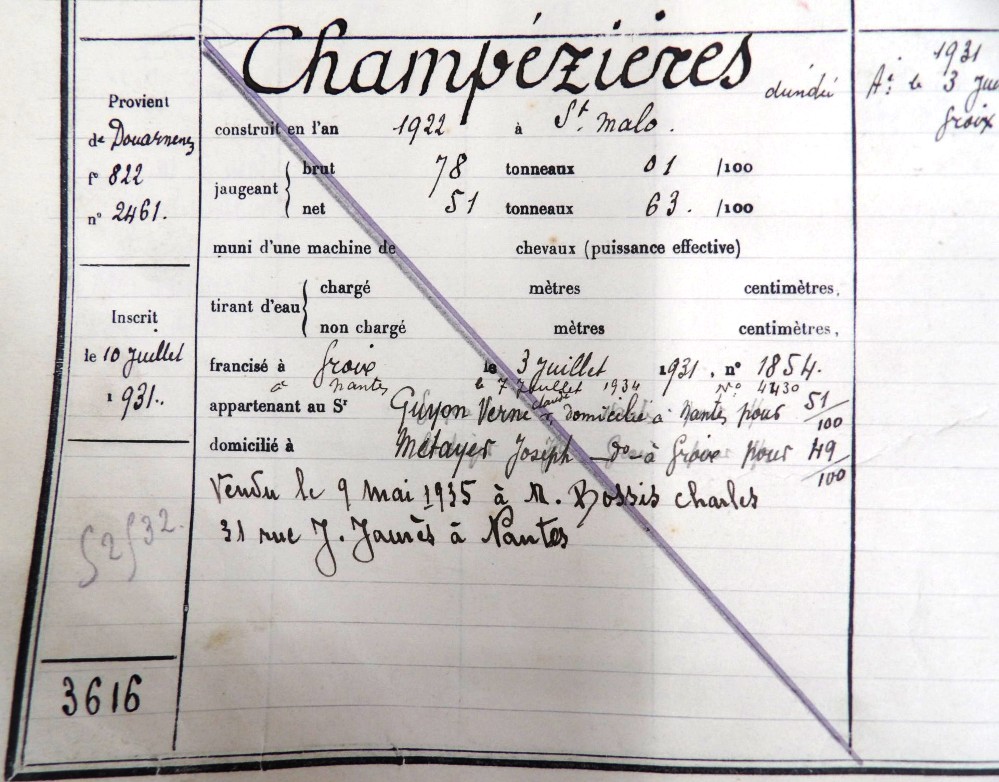 Champézières dundée
Provient
de Douarnenez
f° 822
n° 2461.
Inscrit
le 10 Juillet
1931.
3616
construit en l'an 1922 à St. Malo.
jaugeant brut 78 tonneaux 01 /100
net 51 tonneaux 63. /100
muni d'une machine de chevaux (puissance effective)
tirant d'eau chargé mètres centimètres,
non chargé mètres centimètres,
francisé à Groix le 3 Juillet 1931, n° 1854.
à Nantes le 7 Juillet 1934 N° 4430
appartenant au Sr Guyon Verne Claude domicilié à Nantes pour 51/100
domicilié à Métayer Joseph do à Groix pour 49/100
Vendu le 9 mai 1935 à M. Bossis Charles
31 rue J. Jaurès à Nantes
1931
le 3
Groix